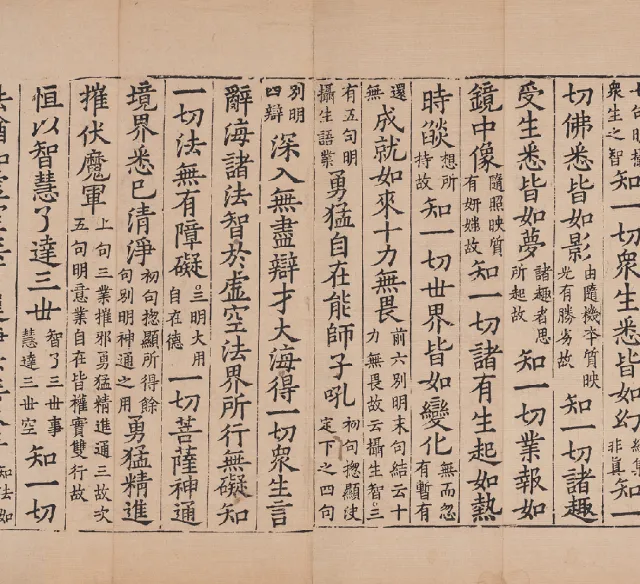 衆生之智知一切衆生悉皆如幻非真知一
切佛悉皆如影由隨機夲質映光有勝劣故知一切諸趣
受生悉皆如夢諸趣者思所起故知一切業報如
鏡中像隨照映質有妍媸故知一切諸有生起如熱
時燄想所持故知一切世界皆如變化無而忽有暫有
還無成就如來十力無畏前六別明末句結云十力無畏故云攝生智○三
有五句明攝生語業勇猛自在能師子吼初句揔顯決定下之四句
別明四辯深入無盡辯才大海得一切衆生言
辭海諸法智於虛空法界所行無礙知
一切法無有障礙○三明大用自在德一切菩薩神通
境界悉已清淨初句揔顯所得餘句別明神通之用勇猛精進
摧伏魔軍上句三業摧邪勇猛精進通三故次五句明意業自在皆權實雙行故
恒以智慧了達三世智了三世事慧達三世空知一切